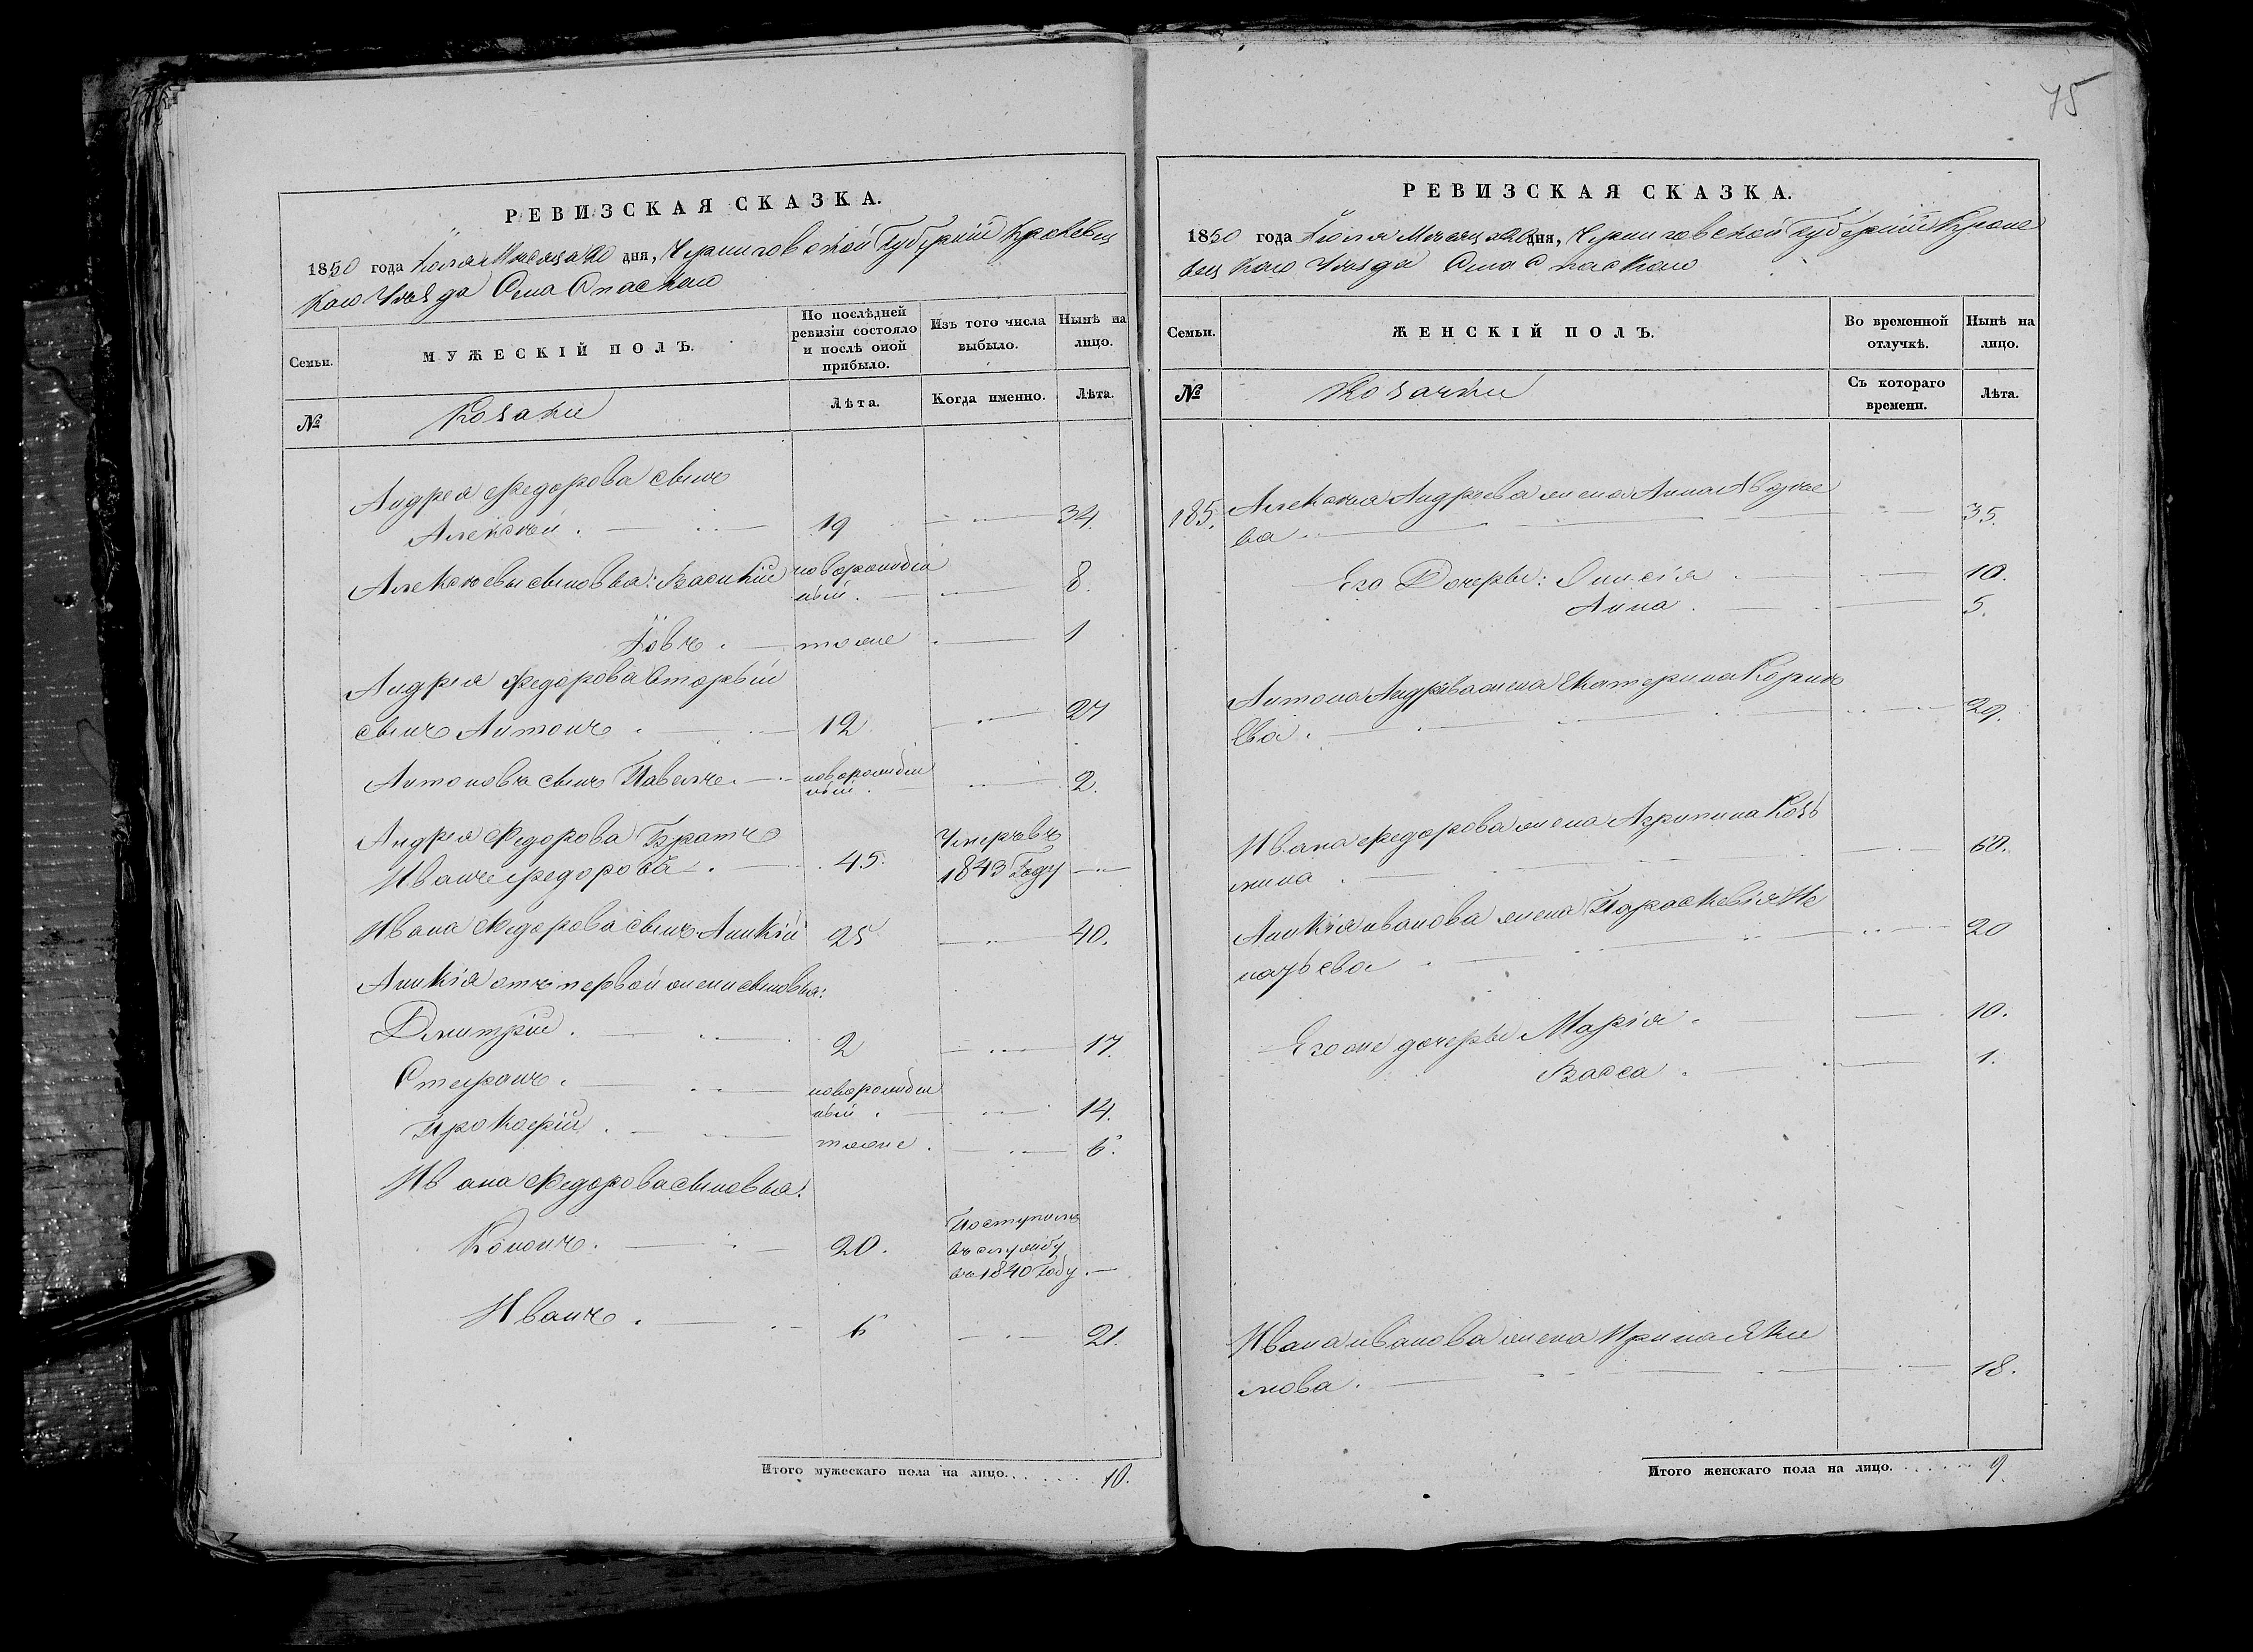 РЕВИЗСКАЯ СКАЗКА.
1850 года Іюля Мѣсяца 20 дня, Черниговской Губерніи Кролевец
каго Уѣзда Села Спаскаго
Семьи.
МУЖЕСКІЙ ПОЛЪ.
По послѣдней ревизіи состояло и послѣ оной прибыло.
Изъ того числа выбыло.
Нынѣ на лицо.
№
Козаки
Лѣта.
Когда именно.
Лѣта.
Андрея Федорова сынъ
Алексѣй 19 34.
Алексѣевы сыновья: Василій новорожден
ный. 8.
Іовъ тоже 1
Андрея Федорова вторый
сынъ Антонъ 12 27
Антоновъ сынъ Павелъ новорожден
ный. 2.
Андрея Федорова Братъ Умеръ въ
Иванъ Федоровъ 45. 1843 Году
Ивана Федорова сынъ Аникій 25 40.
Аникія отъ первой жены сыновья:
Дмитрій 2 17.
Стефанъ новорожден
ный 14.
Прокофій тоже 6.
Ивана Федорова сыновья:
Поступилъ
Кононъ 20. въ службу
въ 1840 Году
Иванъ 6 21.
Итого мужескаго пола на лицо 10.
75
РЕВИЗСКАЯ СКАЗКА.
1850 года Іюля Мѣсяца 20 дня, Черниговской Губерніи Кроле
вецкаго Уѣзда Села Спаскаго
Семьи.
ЖЕНСКІЙ ПОЛЪ.
Во временной отлучкѣ.
Нынѣ на лицо.
№
Козачки
Съ котораго времени.
Лѣта.
185. Алексѣя Андреева жена Анна Авдѣе
ва 35.
Его Дочеры: 10.
Анна 5.
Антона Андреева жена Екатерина Корнѣ
ева 29.
Ивана Федорова жена Агрипина Козь
мина 60.
Аникія иванова жена Параскевія Иг
натьева 20
Его же дочеры Марія 10.
Васса 1.
Ивана иванова жена Ирина Яки
мова 18.
Итого женскаго пола на лицо 9